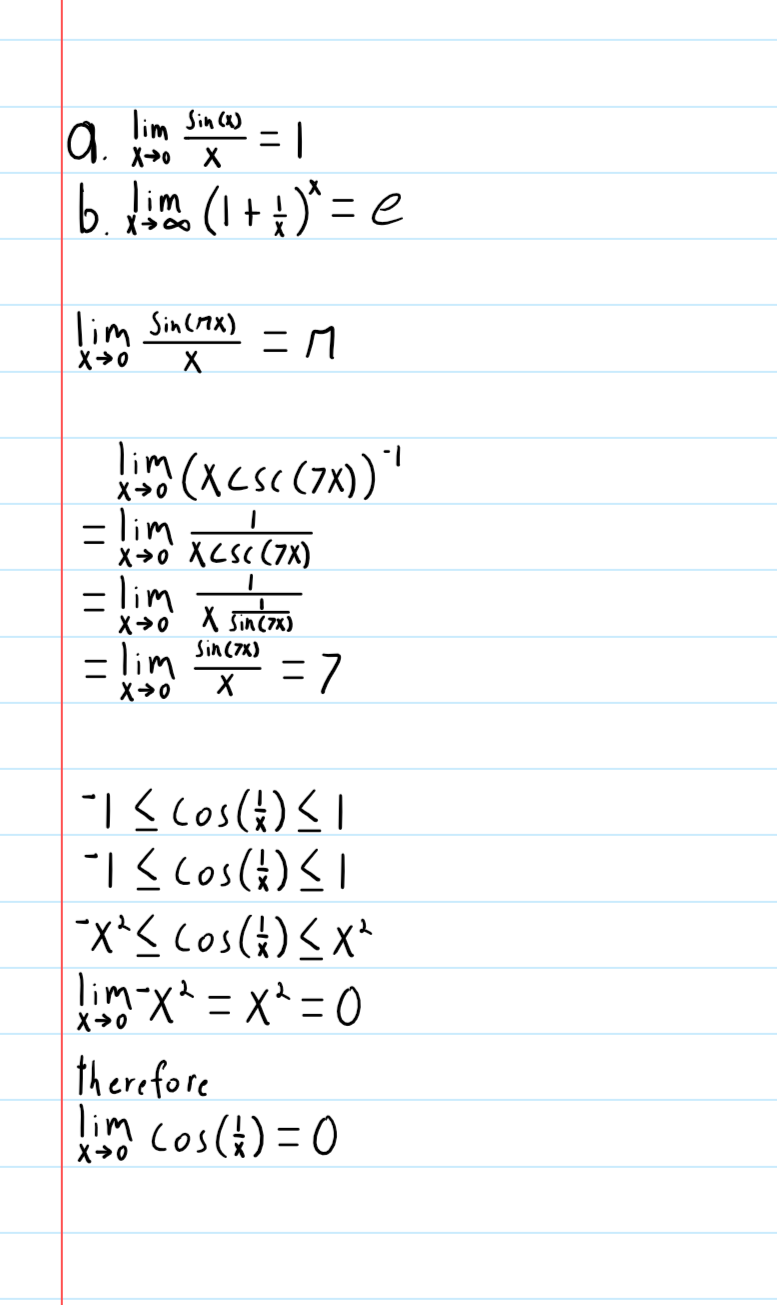 a. lim x→0 sin(x)/x = 1
b. lim x→∞ (1 + 1/x)^x = e
lim x→0 sin(nx)/x = n
lim x→0 (x csc(7x))^-1
= lim x→0 1/(x csc(7x))
= lim x→0 1/(x 1/sin(7x))
= lim x→0 sin(7x)/x = 7
-1 ≤ cos(1/x) ≤ 1
-1 ≤ cos(1/x) ≤ 1
-x² ≤ cos(1/x) ≤ x²
lim x→0 -x² = x² = 0
therefore
lim x→0 cos(1/x) = 0